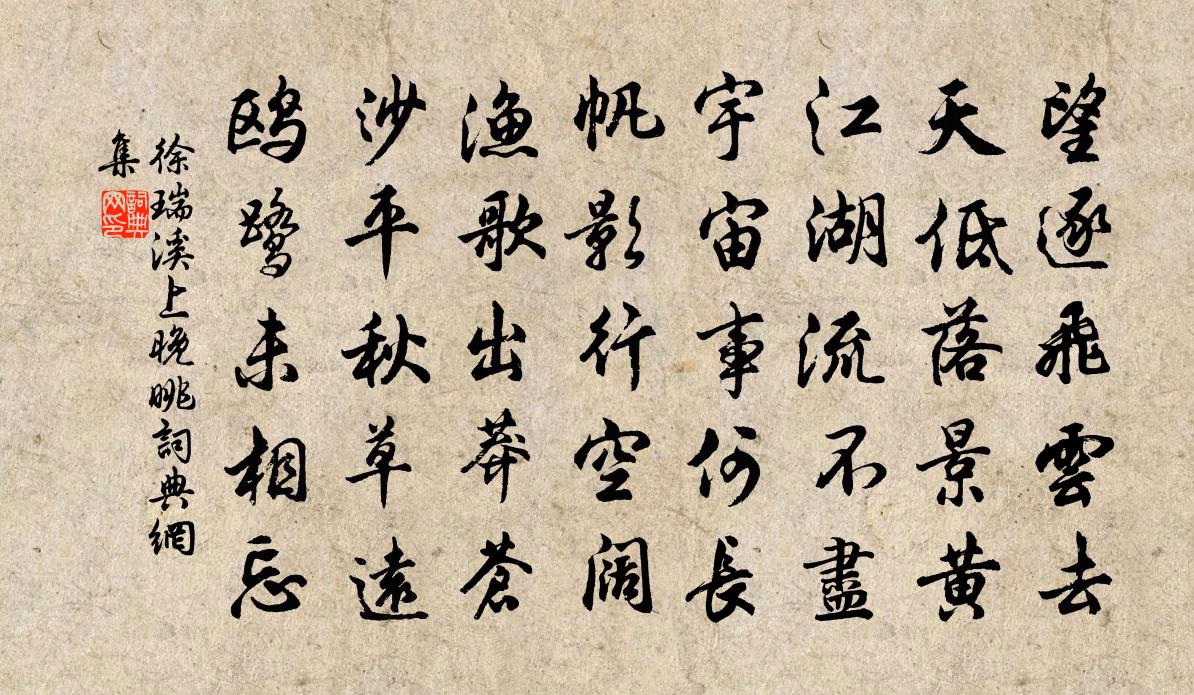 望逐飛雲去
天低落景黄
江湖流不盡
宇宙事何長
帆影行空闊
漁歌出莽蒼
沙平秋草遠
鷗鷺未相忘
徐瑞溪上晚眺詞典網
集
詞典
网印